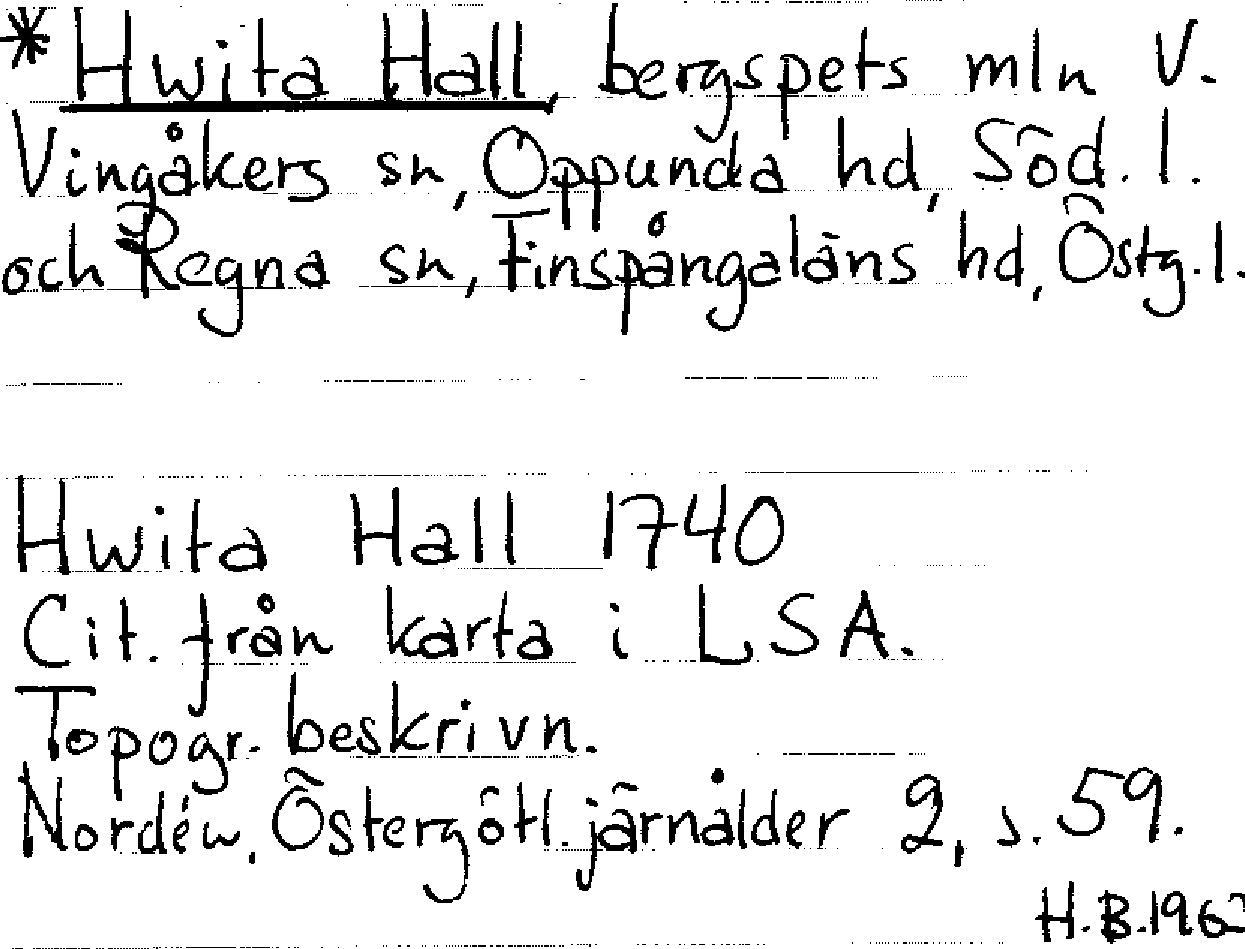 * Hwita Hall, bergspets mln V.
Vingåkers sn, Oppunda hd, Söd. l.
och Regna sn, Finspångaläns hd, Östg. l.
Hwita Hall 1740
Cit. från karta i LSA.
Topogr. beskrivn.
Nordén, Östergötl. järnålder 2, s. 59.
H.B.